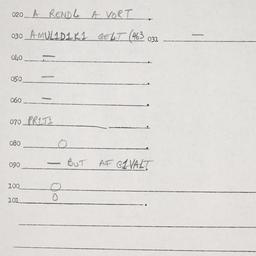 020 A RENDL A VORT
030 AMUL1D1K1 GELT (463 031 —
040 —
050 —
060 —
070 PR1T1
080 O
090 — BUT AF G1VALT
100 O
101 O